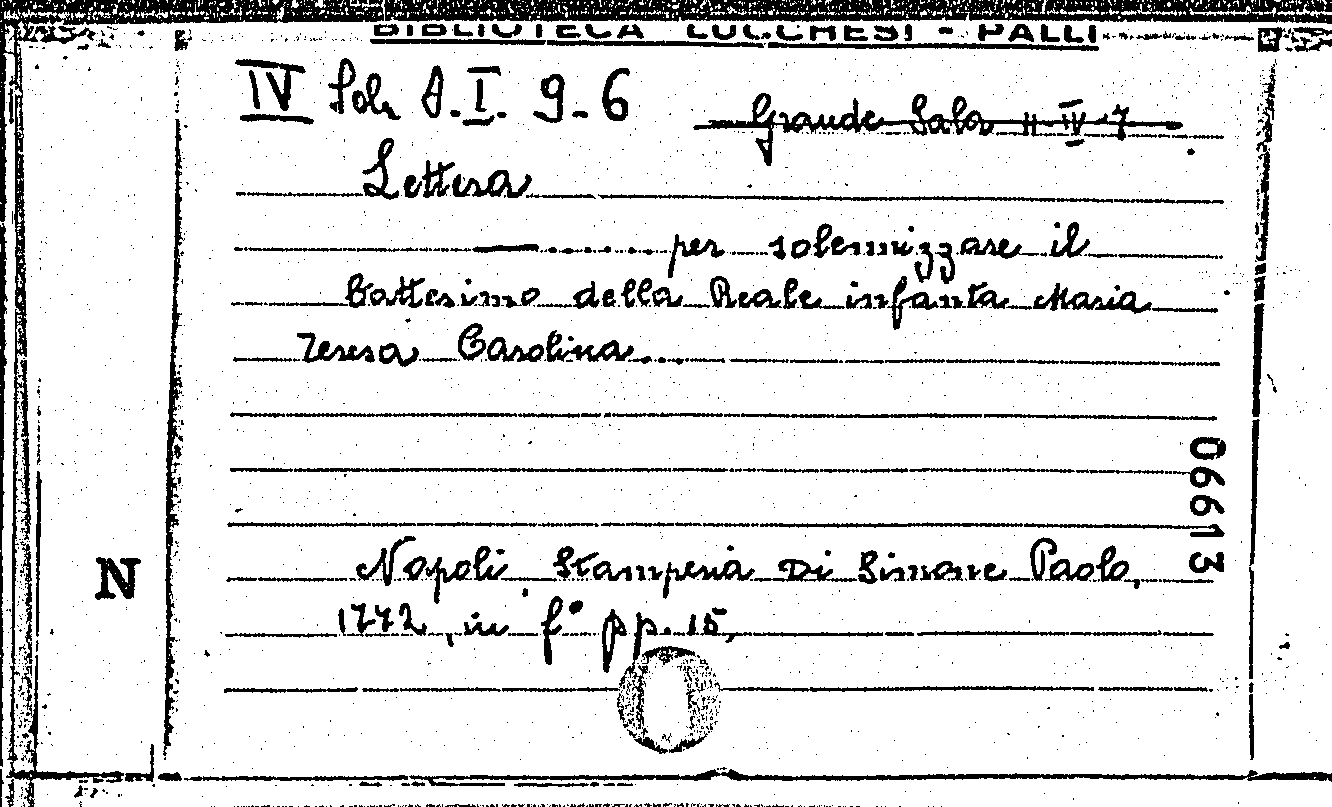 BIBLIOTECA LUCCHESI - PALLI
IV Sala A. I. 9-6
Grande Sala II-IV-7
Lettera
——...... per solennizzare il
battesimo della Reale infanta Maria
Teresa Carolina....
Napoli, Stamperia Di Simone Paolo,
1772, in f° pp. 15,
06613
N